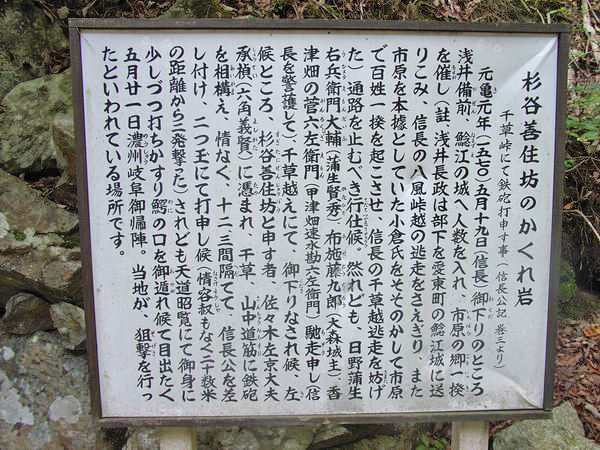 杉谷善住坊のかくれ岩
千草峠にて鉄砲打申す事(信長公記 巻三より)
元亀元年(一五七〇)五月十九日(信長)御下りのところ
浅井備前、鯰江の城へ人数を入れ、市原の郷一揆
を催し(註 浅井長政は部下を愛東町の鯰江城に送
りこみ、信長の八風峠越の逃走をさえぎり、また
市原を本據としていた小倉氏をそそのかして市原
で百姓一揆を起こさせ、信長の千草越逃走を妨げ
た)通路を止むべき行仕候。然れども、日野蒲生
右兵衛門大輔(蒲生賢秀)布施藤九郎(大森城主)香
津畑の菅六左衛門(甲津畑速水勘六左衛門)馳走申し(信
長を警護して)千草越えにて、御下りなされ候、左
候ところ、杉谷善住坊と申す者、佐々木左京大夫
承禎(六角義賢)に憑まれ、千草、山中道筋に鉄砲
を相構え、情なく、十二、三間隔てて、信長公を差
し付け、二つ玉にて打申し候(情容赦もなく二十数米
の距離から二発撃った)されども天道昭覧にて御身に
少しづつ打ちかすり鰐の口を御遁れ候て目出たく
五月廿一日濃州岐阜御帰陣。当地が、狙撃を行っ
たといわれている場所です。